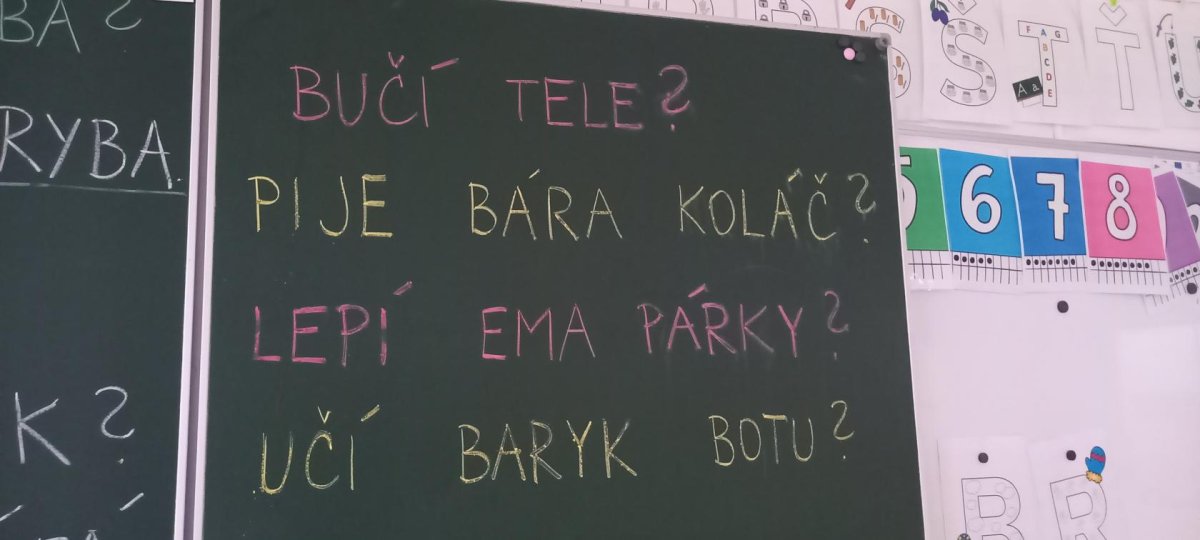 BA?
RYBA.
K?
BUČÍ TELE?
PIJE BÁRA KOLÁČ?
LEPÍ EMA PÁRKY?
UČÍ BARYK BOTU?
Š T Ť U
F A G
B
C
D
E
A a
5 6 7 8
B R